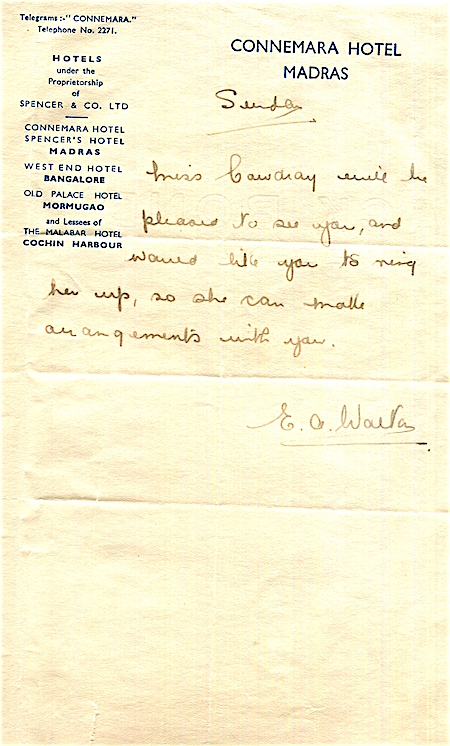 Telegrams :-" CONNEMARA."
Telephone No. 2271.
HOTELS
under the
Proprietorship
of
SPENCER & CO. LTD
CONNEMARA HOTEL
SPENCER'S HOTEL
MADRAS
WEST END HOTEL
BANGALORE
OLD PALACE HOTEL
MORMUGAO
and Lessees of
THE MALABAR HOTEL
COCHIN HARBOUR
CONNEMARA HOTEL
MADRAS
Sunday
Miss Cowdray will be
pleased to see you, and
would like you to ring
her up, so she can make
arrangements with you.
E. A. Walton